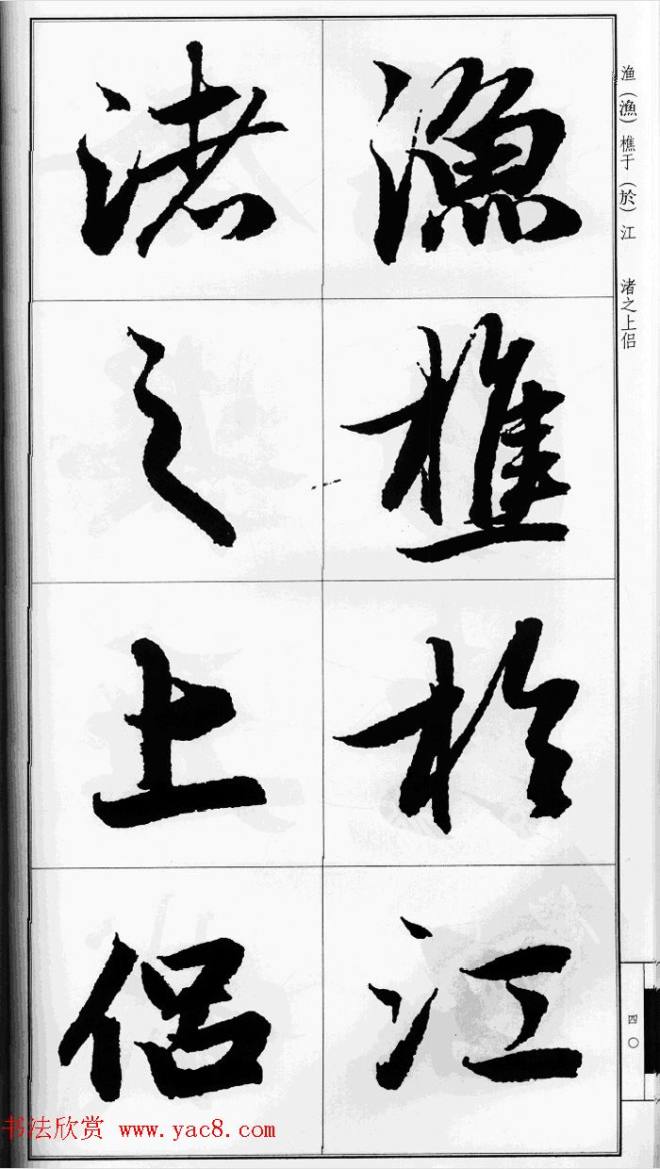 渔（漁）樵于（於）江　渚之上侣
漁樵於江
渚之上侶
四〇
书法欣赏 www.yac8.com